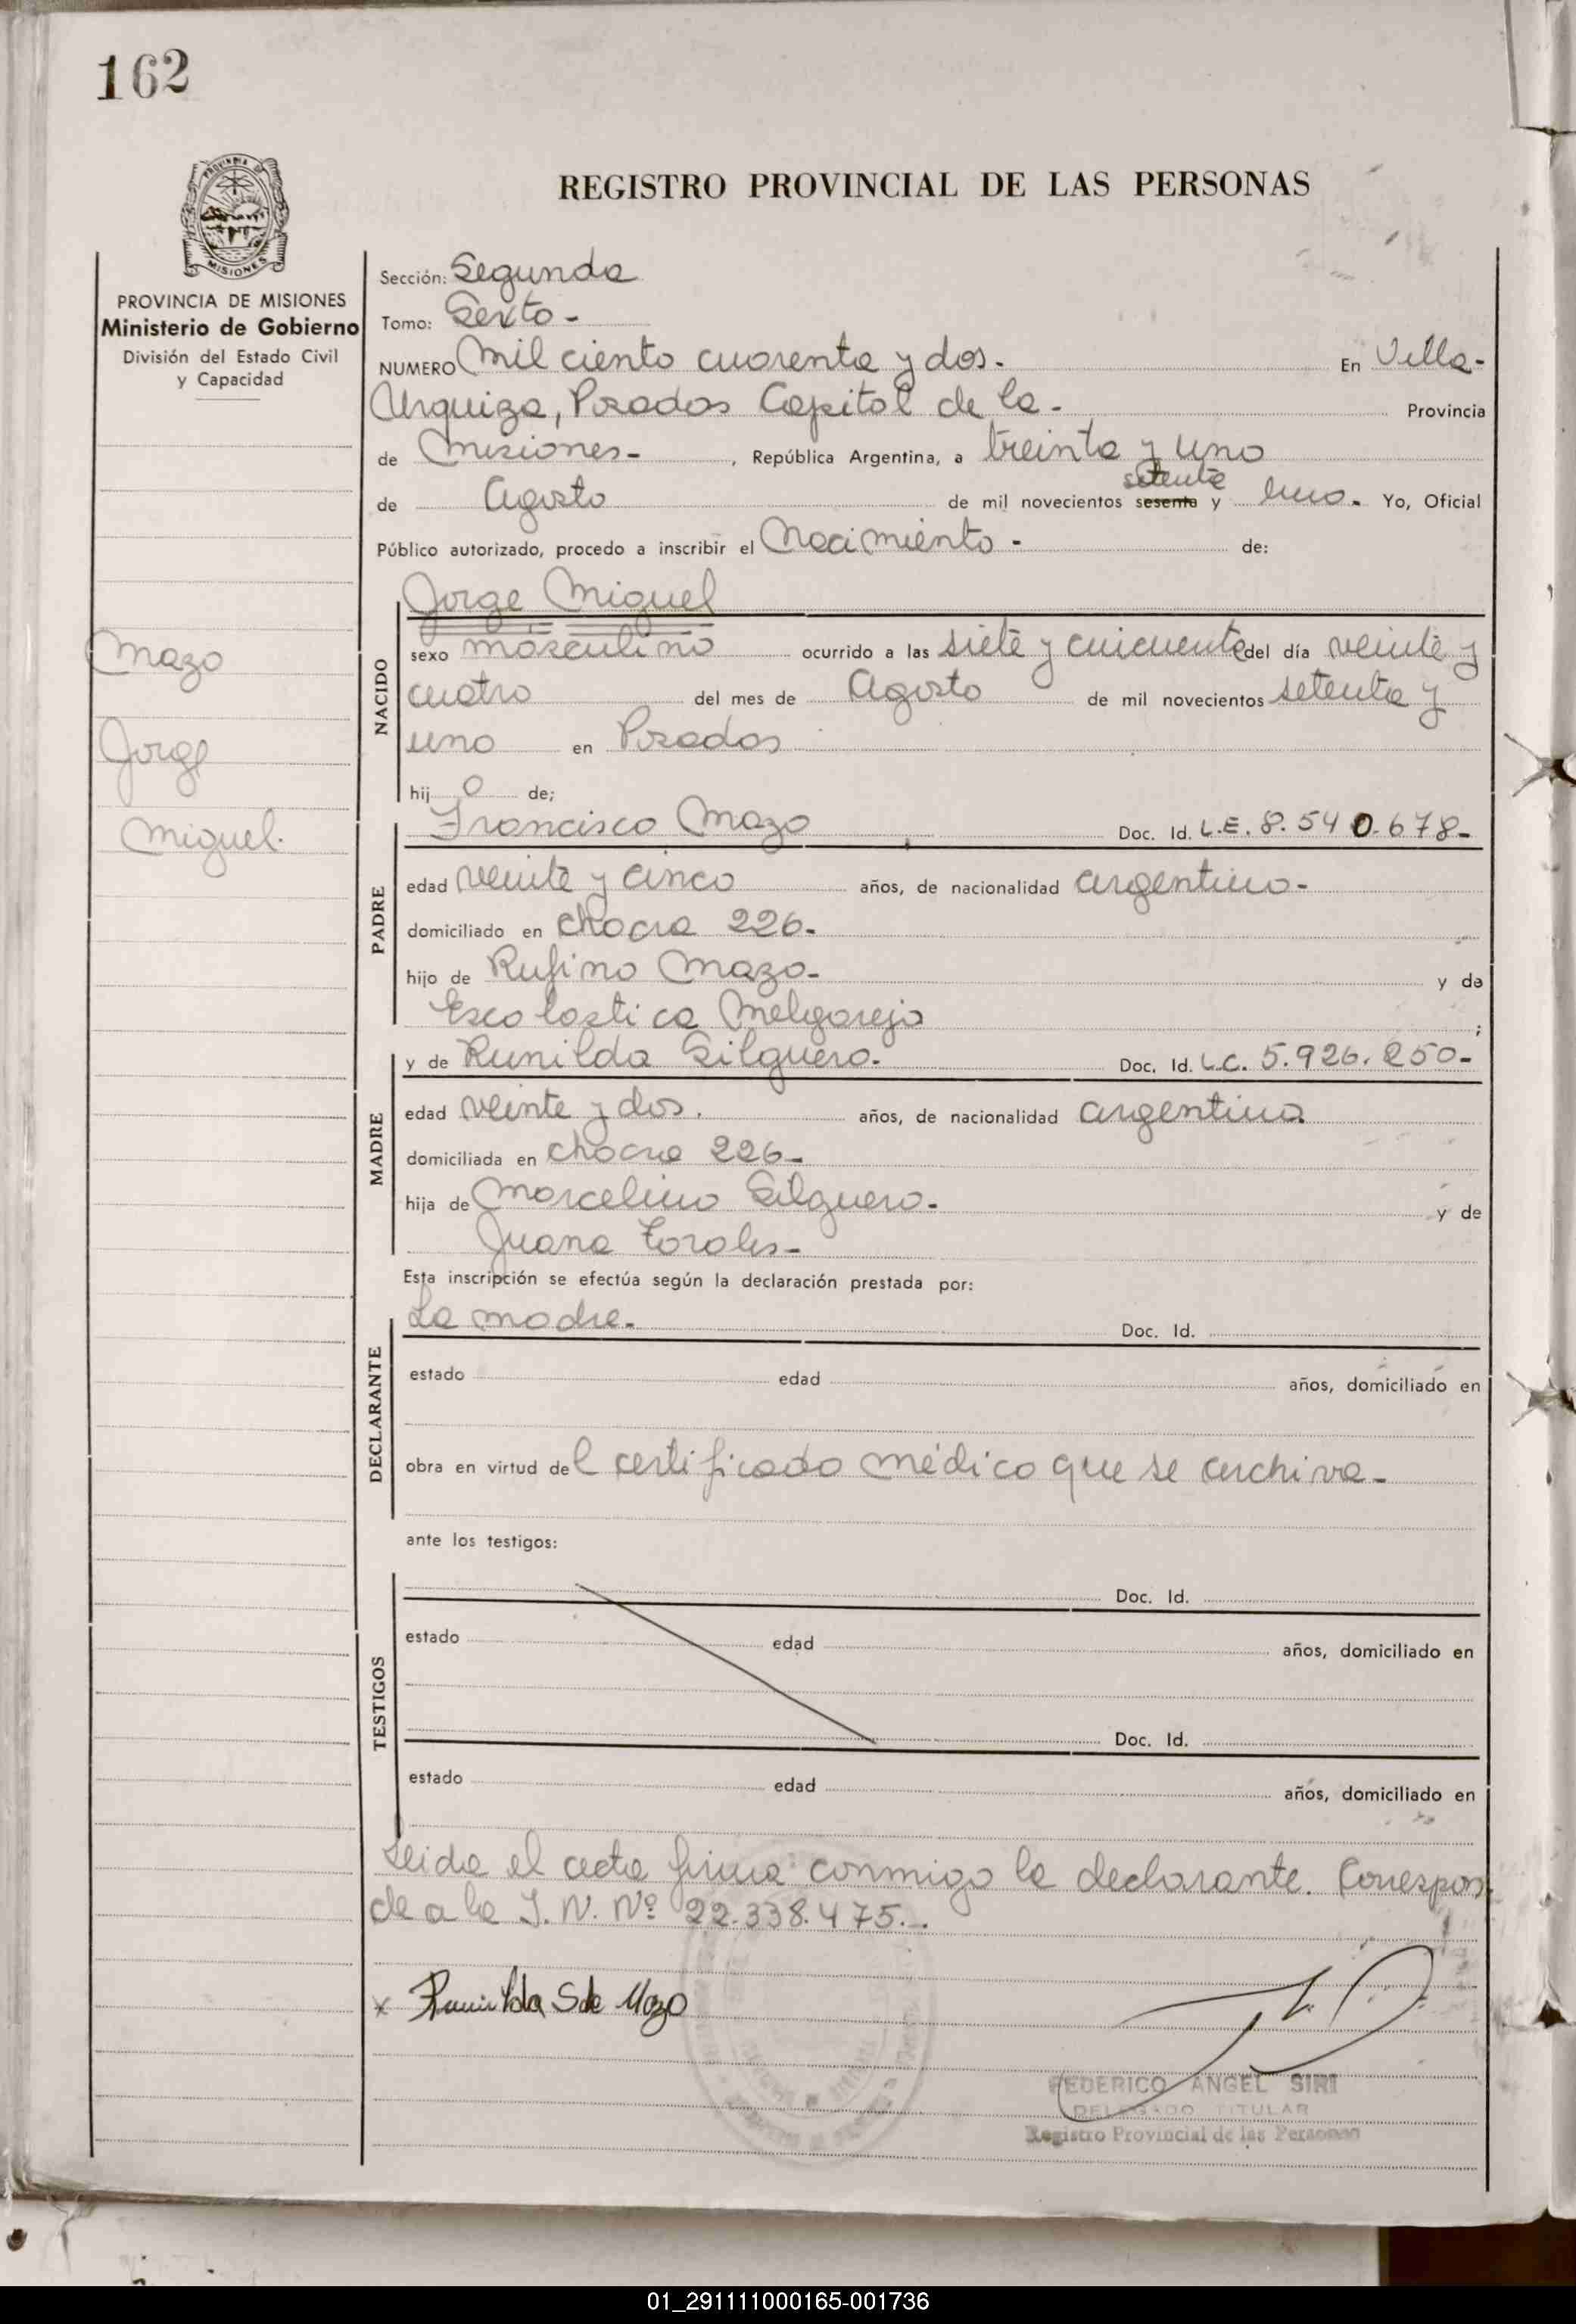 162
PROVINCIA DE
MISIONES
REGISTRO PROVINCIAL DE LAS PERSONAS
PROVINCIA DE MISIONES
Ministerio de Gobierno
División del Estado Civil
y Capacidad
Mazo
Jorge
Miguel.
Sección: Segunda
Tomo: Sexto -
NUMERO Mil ciento cuarenta y dos. En Villa-
Urquiza, Posadas Capital de la - Provincia
de Misiones - , República Argentina, a treinta y uno
setenta
de Agosto de mil novecientos sesenta y uno. Yo, Oficial
Público autorizado, procedo a inscribir el Nacimiento - de:
Jorge Miguel
NACIDO
sexo masculino ocurrido a las siete y cincuenta del día veinte y
cuatro del mes de Agosto de mil novecientos setenta y
uno en Posadas
hij o de;
PADRE
Francisco Mazo Doc. Id. L.E. 8.540.678-
edad veinte y cinco años, de nacionalidad argentino-
domiciliado en chacra 226.
hijo de Rufino Mazo- y de
Escolastica Melgarejo ;
MADRE
y de Runilda Silguero- Doc. Id. L.C. 5.926.250-
edad veinte y dos. años, de nacionalidad argentina
domiciliada en chacra 226-
hija de Marcelino Silguero- y de
Juana Torales-
Esta inscripción se efectúa según la declaración prestada por:
DECLARANTE
La madre. Doc. Id.
estado edad años, domiciliado en
obra en virtud del certificado médico que se archiva-
ante los testigos:
TESTIGOS
Doc. Id.
estado edad años, domiciliado en
Doc. Id.
estado edad años, domiciliado en
Leida el acta firma conmigo la declarante. Correspon
de a la I. N. Nº 22.338.475.-
x Runilda S de Mazo
FEDERICO ANGEL SIRI
DELEGADO TITULAR
Registro Provincial de las Personas
01_291111000165-001736